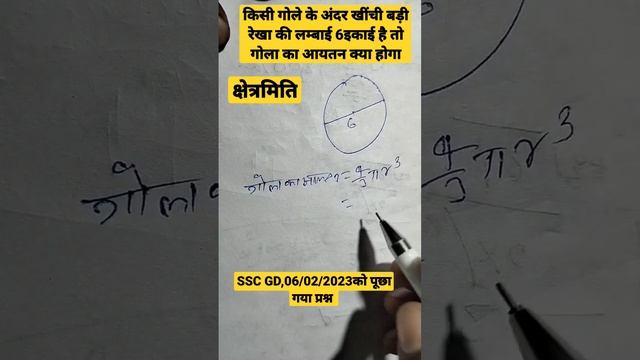 किसी गोले के अंदर खींची बड़ी
रेखा की लम्बाई 6इकाई है तो
गोला का आयतन क्या होगा
क्षेत्रमिति
6
गोला का आयतन = 4/3 πr³
=
SSC GD,06/02/2023को पूछा
गया प्रश्न